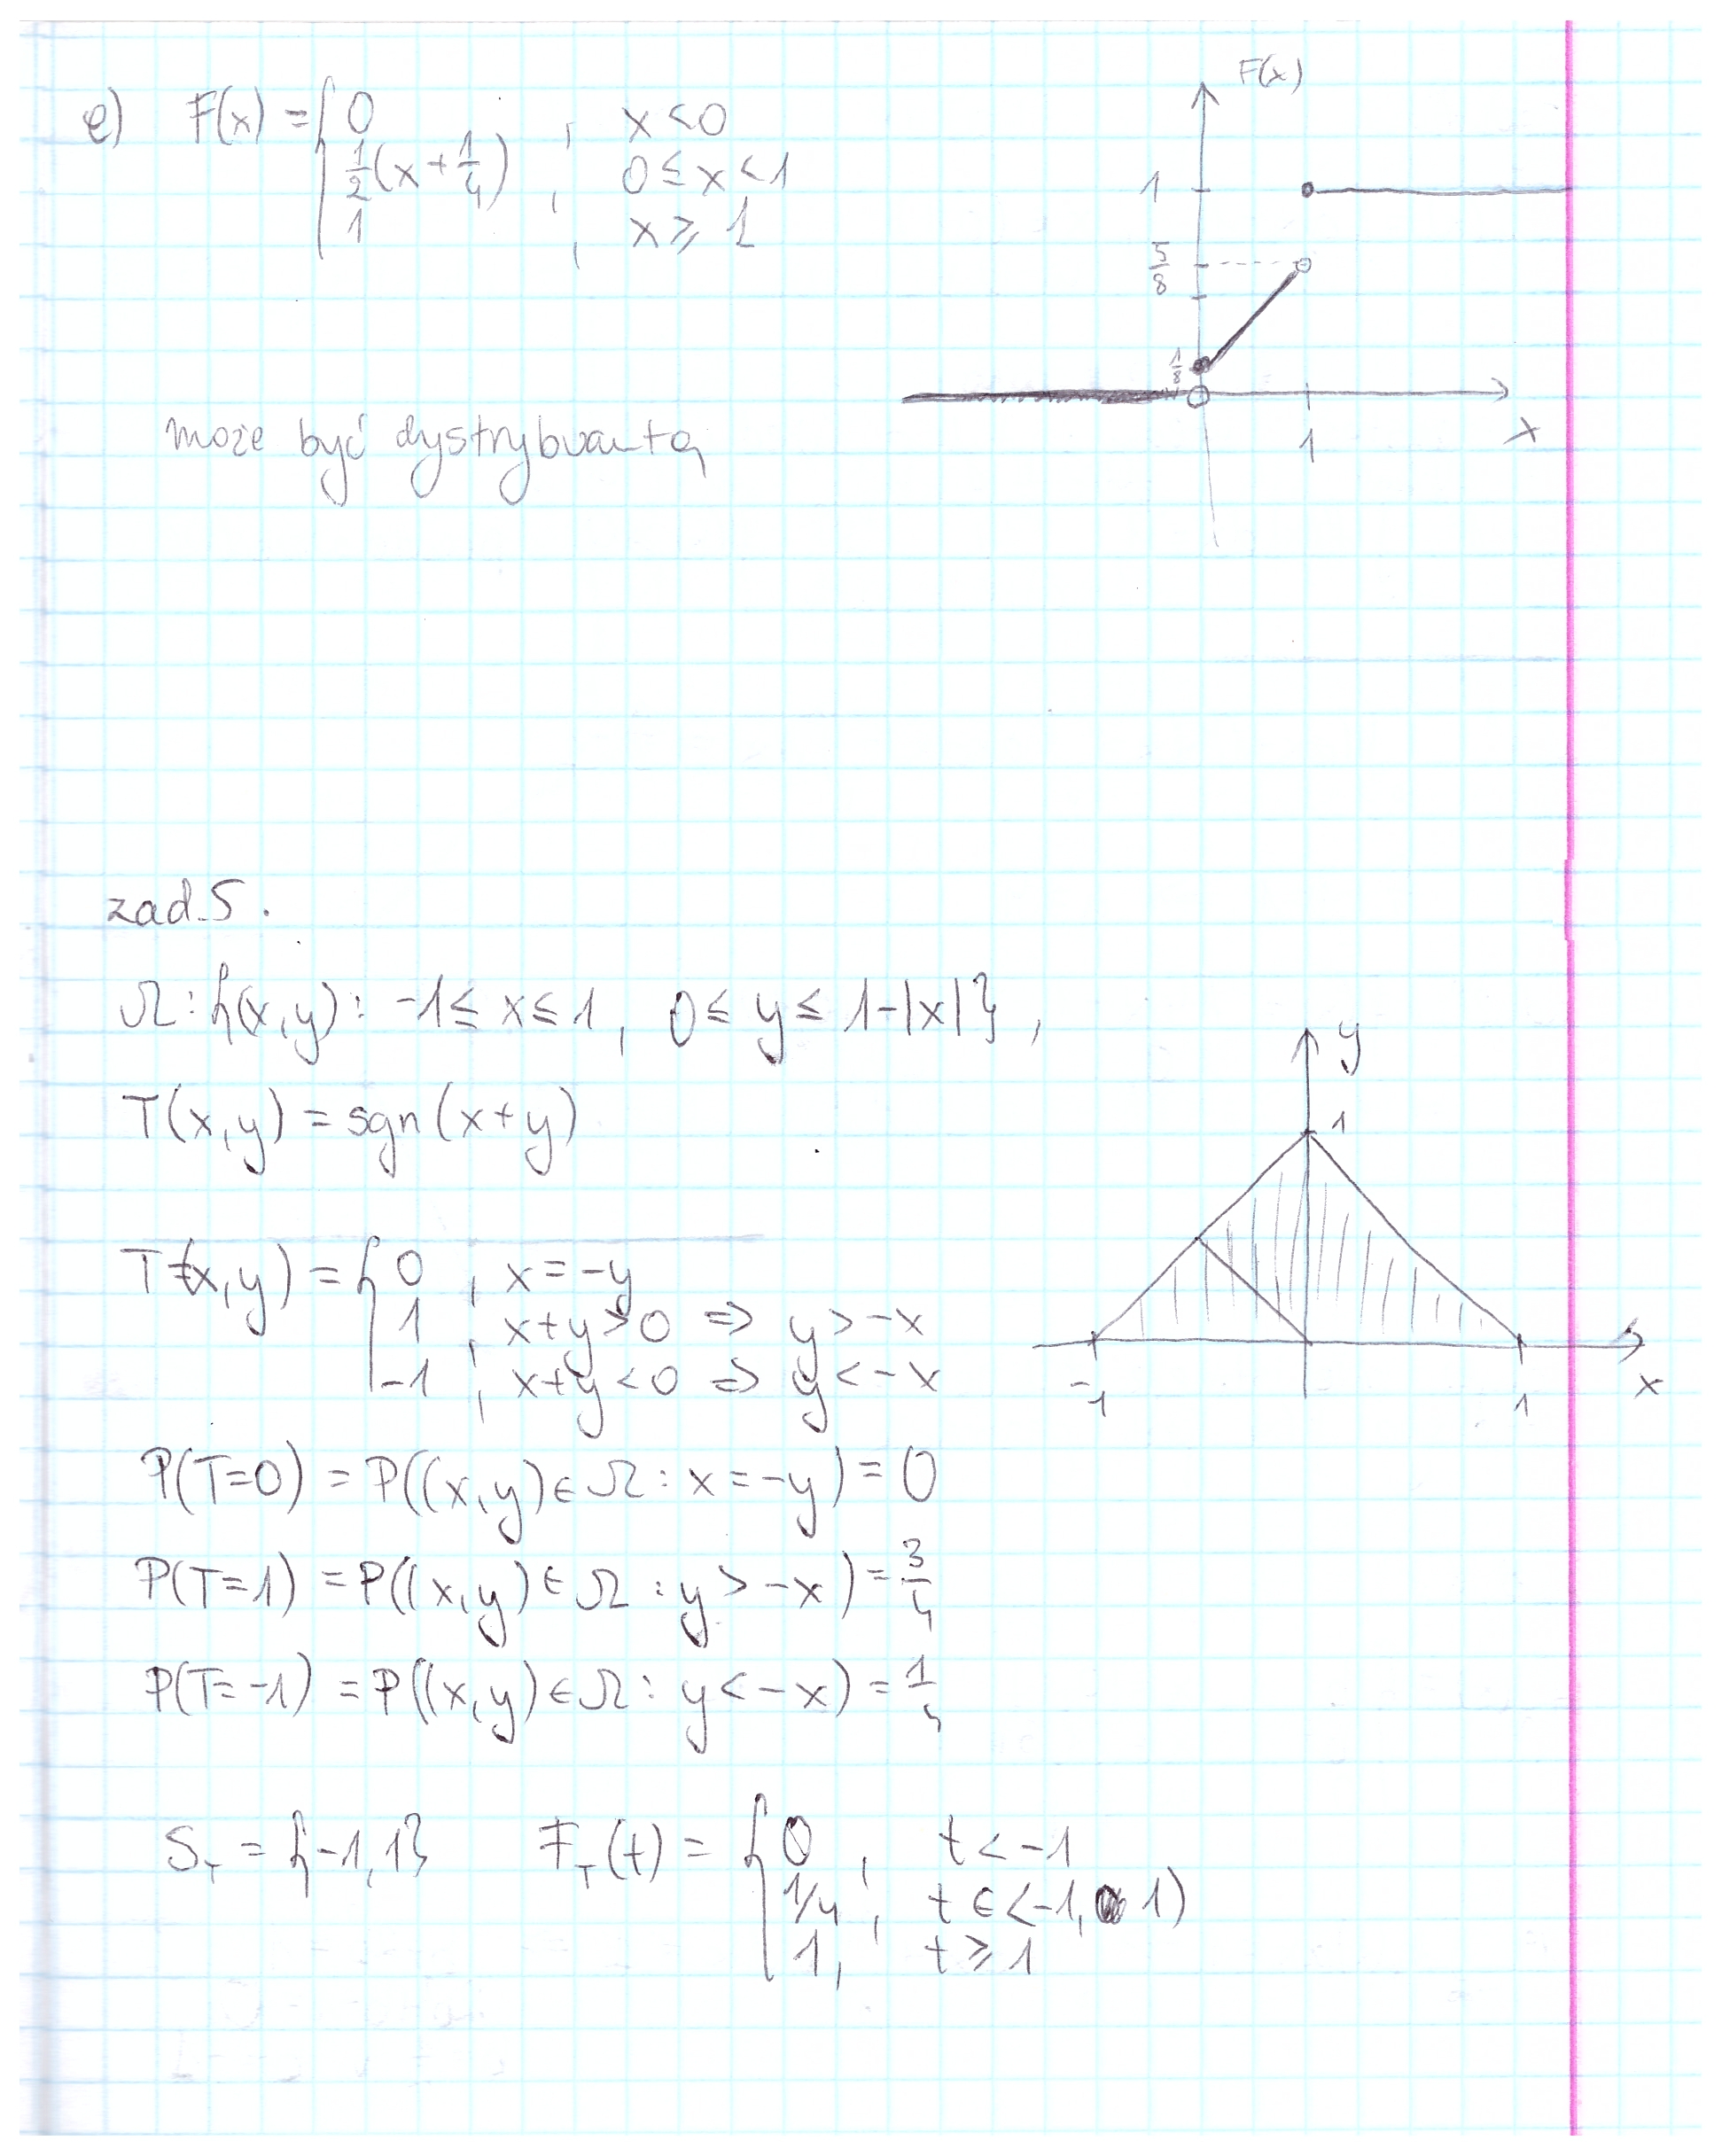 e) F(x) = { 0 , x < 0
1/2 (x + 1/4) , 0 ≤ x < 1
1 , x ≥ 1
F(x)
1
5/8
1/8
1
x
może być dystrybuantą
zad. 5.
Ω : {(x,y) : -1 ≤ x ≤ 1, 0 ≤ y ≤ 1-|x|},
T(x,y) = sgn(x+y)
y
1
-1
1
x
T(x,y) = { 0 , x = -y
1 , x+y > 0 ⇒ y > -x
-1 , x+y < 0 ⇒ y < -x
P(T=0) = P((x,y) ∈ Ω : x = -y) = 0
P(T=1) = P((x,y) ∈ Ω : y > -x) = 3/4
P(T=-1) = P((x,y) ∈ Ω : y < -x) = 1/4
S_T = {-1, 1} F_T(t) = { 0 , t < -1
1/4 , t ∈ <-1, 1)
1 , t ≥ 1